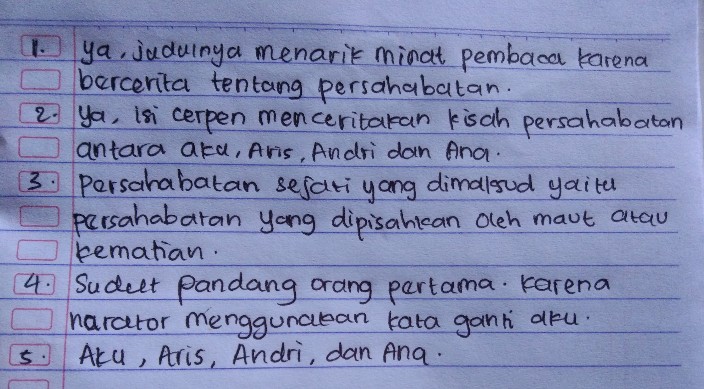 1. ya, judulnya menarik minat pembaca karena
bercerita tentang persahabatan.
2. Ya, isi cerpen menceritakan kisah persahabatan
antara aku, Aris, Andri dan Ana.
3. Persahabatan sejati yang dimaksud yaitu
persahabatan yang dipisahkan oleh maut atau
kematian.
4. Sudut pandang orang pertama. Karena
narator menggunakan kata ganti aku.
5. Aku, Aris, Andri, dan Ana.